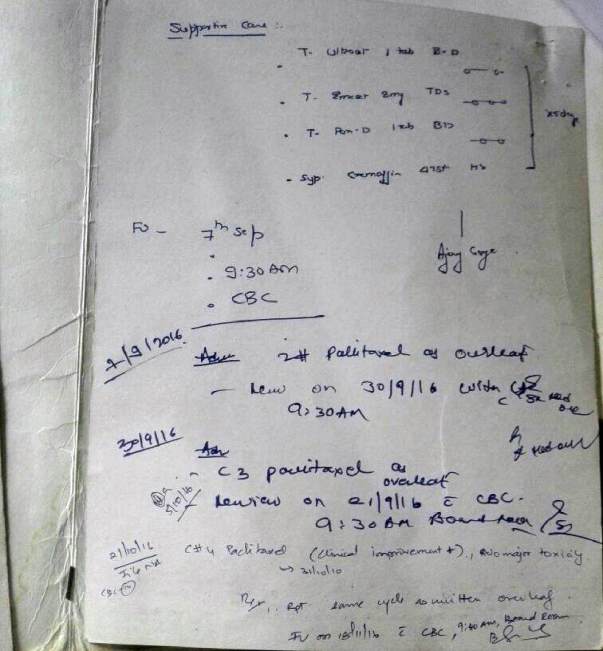 Supportive Care :-
T. Ultracet 1 tab B-D
T. Emset 8mg TDS
T. Pan-D 1 tab BD
x5days
Syp. Cremaffin HS
FU - 7th Sep
9:30 AM
CBC
Ajay
7/9/2016
Adv 2# Paclitaxel as overleaf
- Review on 30/9/16 with
9:30 AM
30/9/16
Adv
- C3 paclitaxel as
overleaf
5/10/16
- Review on 21/9/16 c̄ CBC.
9:30 AM Board Room
21/10/16 C#4 Paclitaxel (Clinical improvement +), no major toxicity
File
→ 31/10/10
CBC
Rx, Rpt same cycle as written overleaf.
FU on 18/11/16 c̄ CBC, 9:30 AM, Board Room